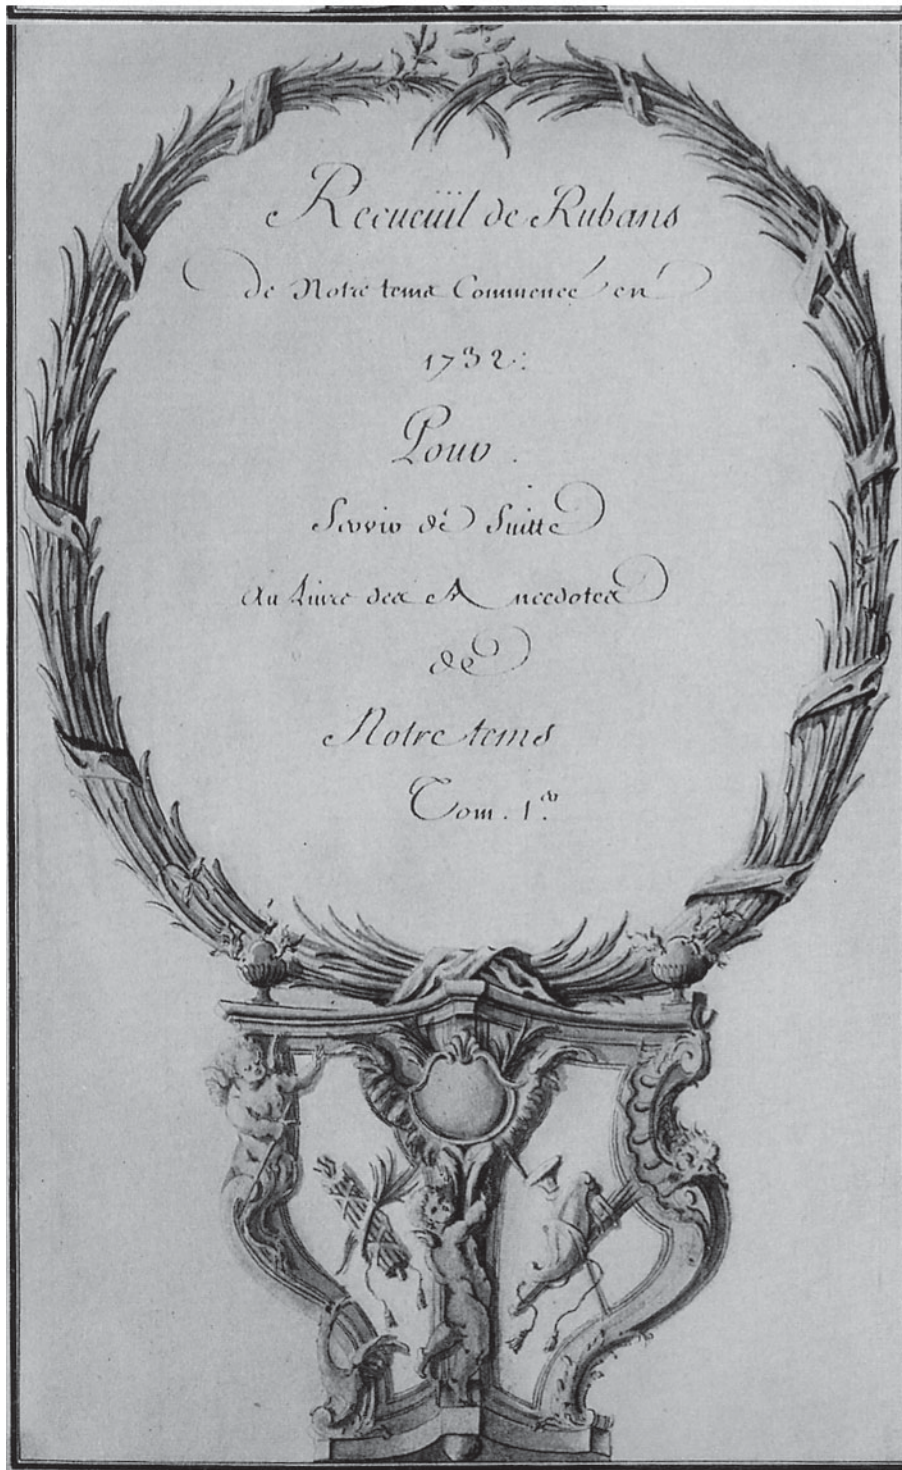 Recueüil de Rubans
de Notre tems Commencé en
1732:
Pour.
Servir de Suitte
Au Livre des Anecdotes
de
Notre tems
Tom. 1.er